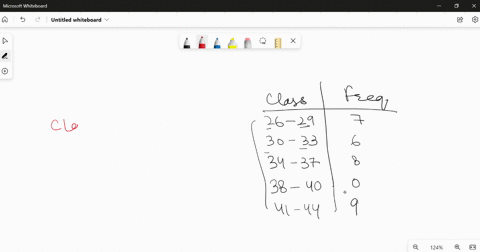 Microsoft Whiteboard
Untitled whiteboard
Class Freq
26-29 7
30-33 6
34-37 8
38-40 0
41-44 9
Cle
124%